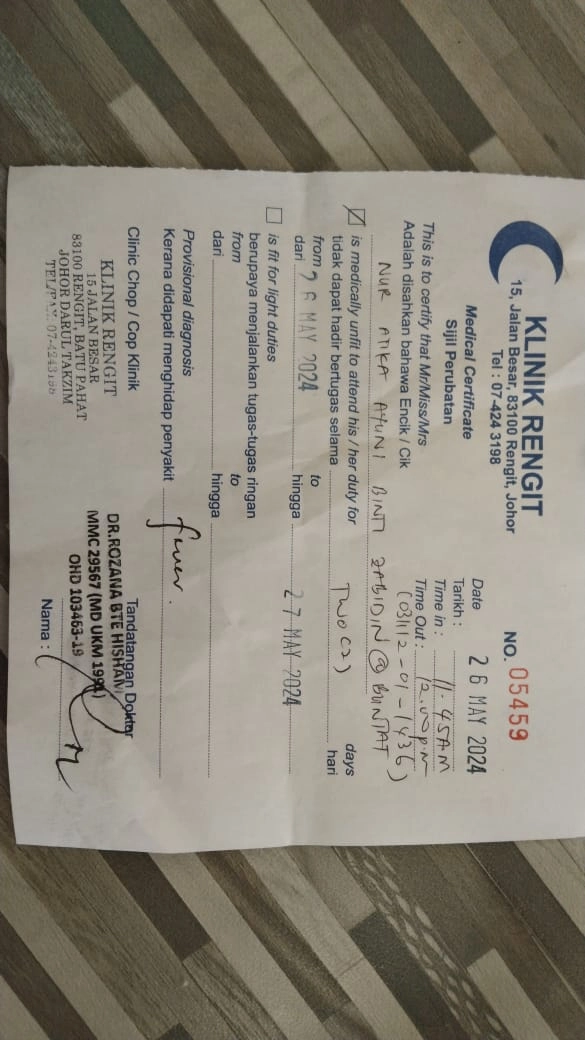 KLINIK RENGIT
15, Jalan Besar, 83100 Rengit, Johor
Tel : 07-424 3198
NO. 05459
Medical Certificate
Sijil Perubatan
Date
Tarikh : 26 MAY 2024
Time in : 11.45AM
Time Out : 12.00P.M
This is to certify that Mr/Miss/Mrs
Adalah disahkan bahawa Encik / Cik
(031112-01-1436)
NUR ATIKA AYUNI BINTI ZABIDIN @ BUNTAT
is medically unfit to attend his / her duty for
tidak dapat hadir bertugas selama TWO (2) days
hari
from to
dari 26 MAY 2024 hingga 27 MAY 2024
is fit for light duties
berupaya menjalankan tugas-tugas ringan
from to
dari hingga
Provisional diagnosis
Kerana didapati menghidap penyakit fever.
Clinic Chop / Cop Klinik
Tandatangan Doktor
KLINIK RENGIT
15 JALAN BESAR
83100 RENGIT, BATU PAHAT
JOHOR DARUL TAKZIM
TEL/FAX: 07-4243198
DR.ROZANA BTE HISHAM
MMC 29567 (MD UKM 1991)
OHD 103463-19
Nama :